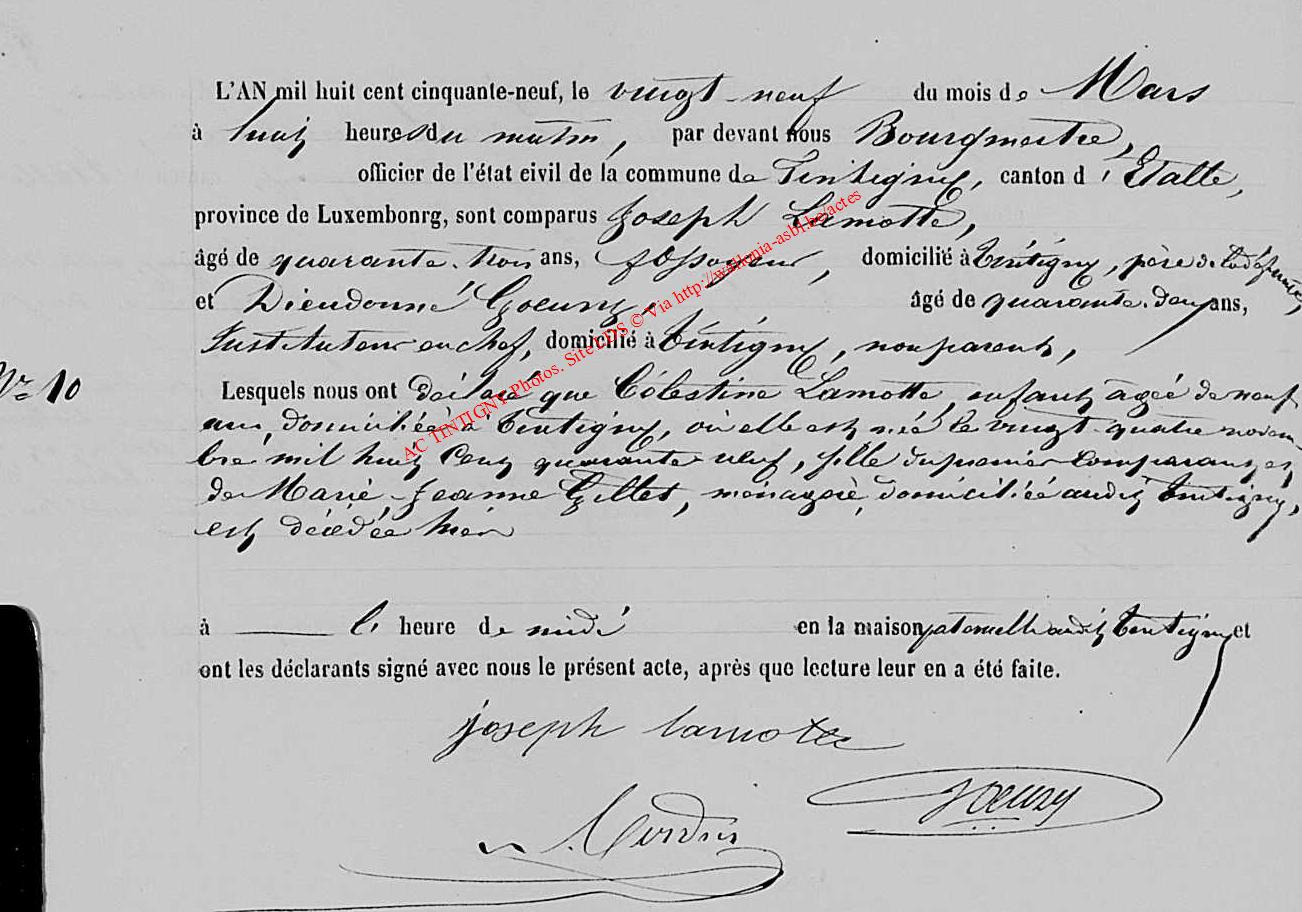 L'AN mil huit cent cinquante-neuf, le vingt-neuf du mois de Mars
à huit heures du matin, par devant nous Bourgmestre,
officier de l'état civil de la commune de Tintigny, canton d'Etalle,
province de Luxembonrg, sont comparus Joseph Lamotte,
âgé de quarante-trois ans, fossoyeur, domicilié à Tintigny, père de la défunte,
et Dieudonné Goeury, âgé de quarante-deux ans,
Instituteur en chef, domicilié à Tintigny, non parent,
N° 10
Lesquels nous ont déclaré que Célestine Lamotte, enfant, âgée de neuf
ans, domiciliée à Tintigny, où elle est née le vingt-quatre novem
bre mil huit cent quarante neuf, fille du premier comparant et
de Marie-Jeanne Gillet, ménagère, domiciliée audit Tintigny,
est décédée hier
à l' heure de midi en la maison paternelle audit Tintigny et
ont les déclarants signé avec nous le présent acte, après que lecture leur en a été faite.
joseph lamotte
Goeury
AC TINTIGNY Photos. Site LDS © Via http://wallonia-asbl.be/actes